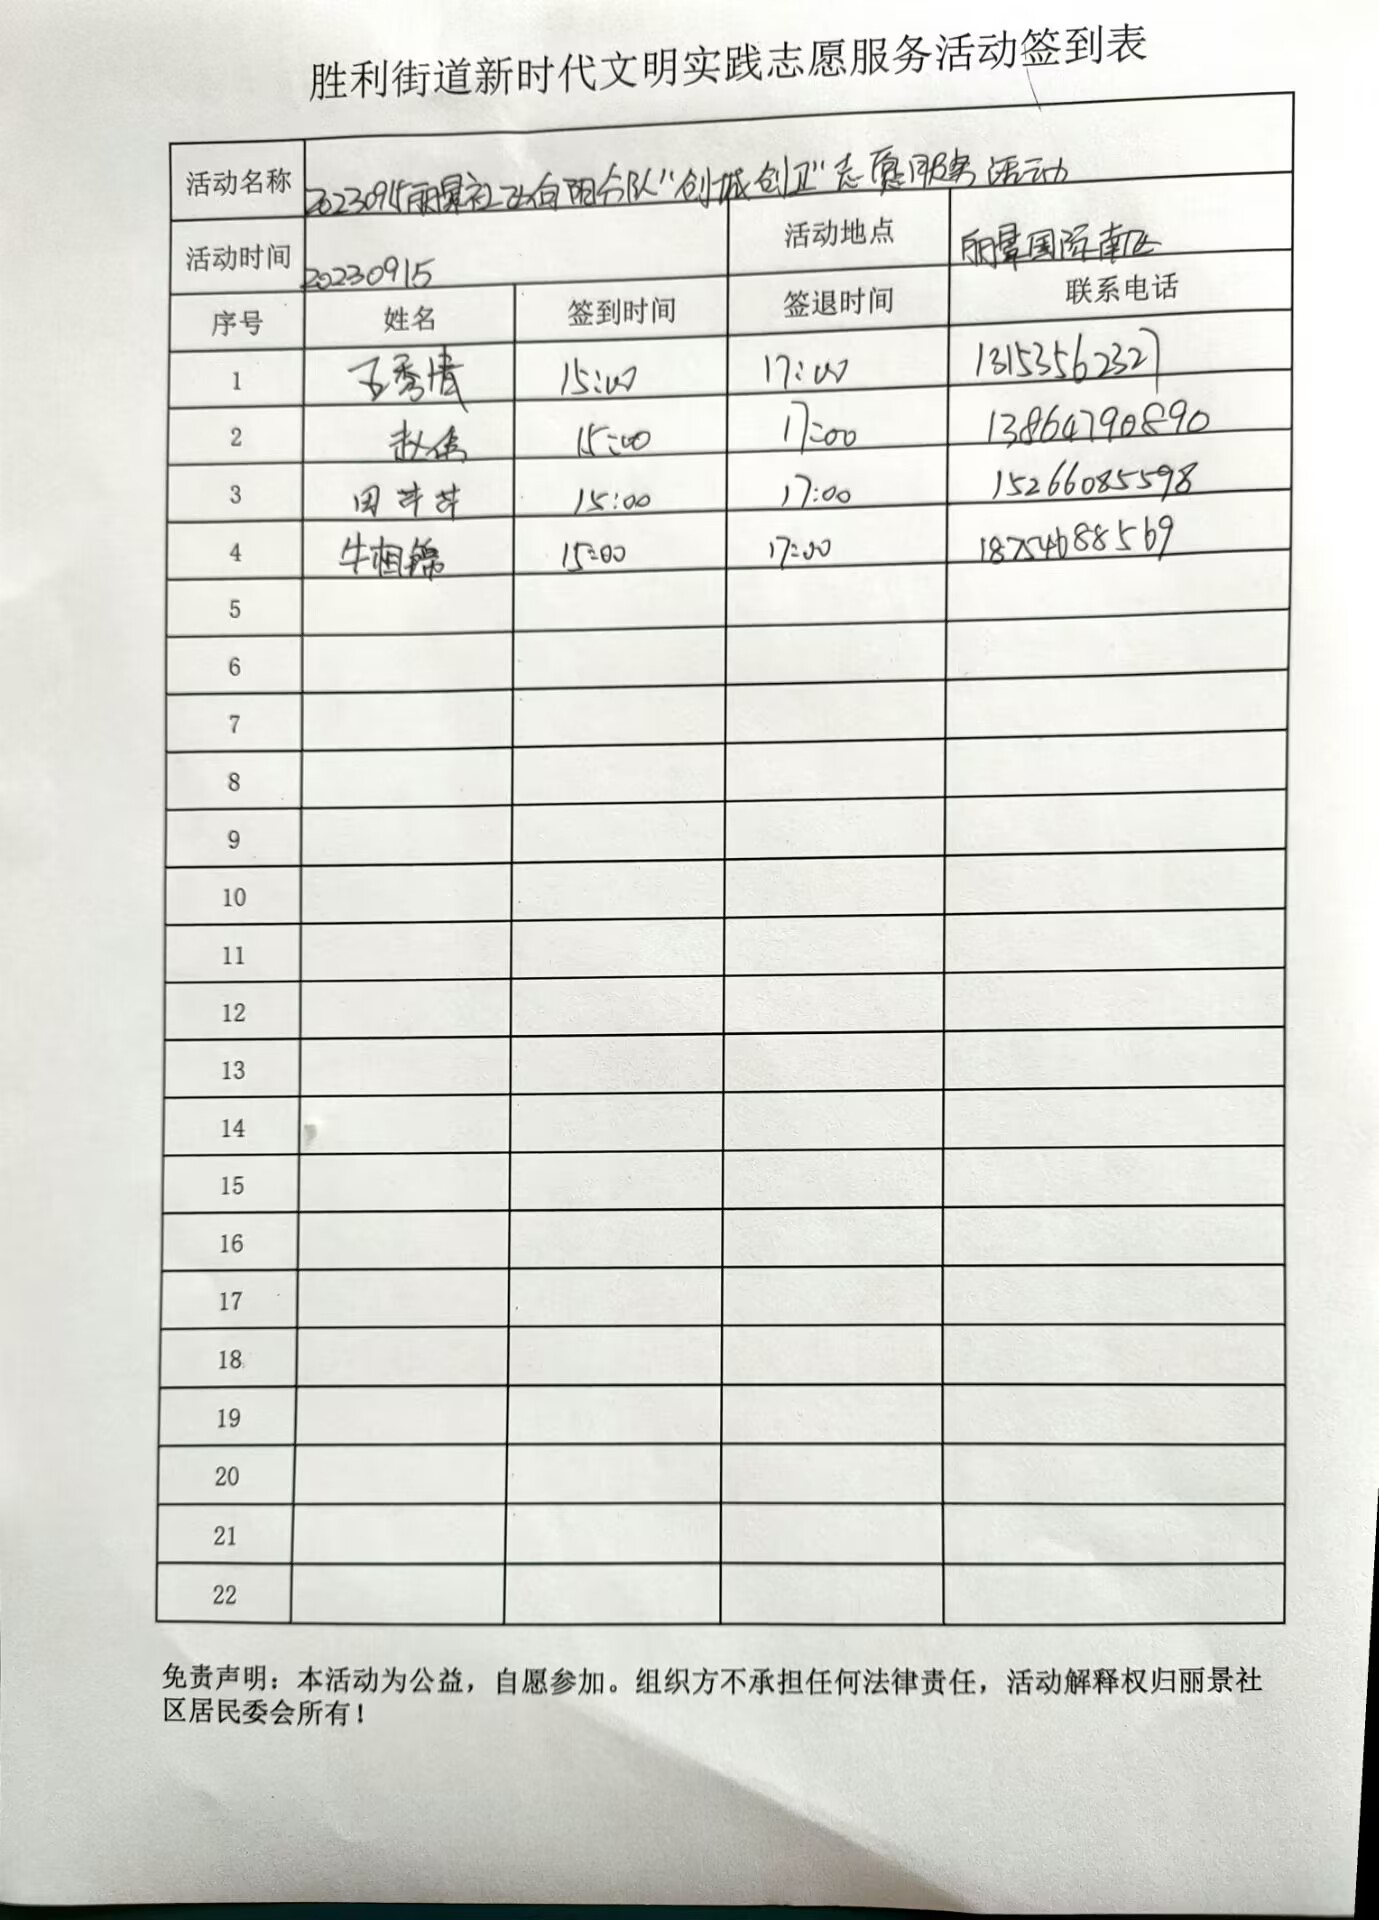 胜利街道新时代文明实践志愿服务活动签到表
活动名称 20230915丽景社区向阳分队"创城创卫"志愿服务活动
活动时间 20230915 活动地点 丽景国际南区
序号 姓名 签到时间 签退时间 联系电话
1 王秀倩 15:00 17:00 13153562327
2 赵倩 15:00 17:00 13864790890
3 田苹苹 15:00 17:00 15266085598
4 牛相锦 15:00 17:00 18754688569
5
6
7
8
9
10
11
12
13
14
15
16
17
18
19
20
21
22
免责声明：本活动为公益，自愿参加。组织方不承担任何法律责任，活动解释权归丽景社
区居民委会所有！